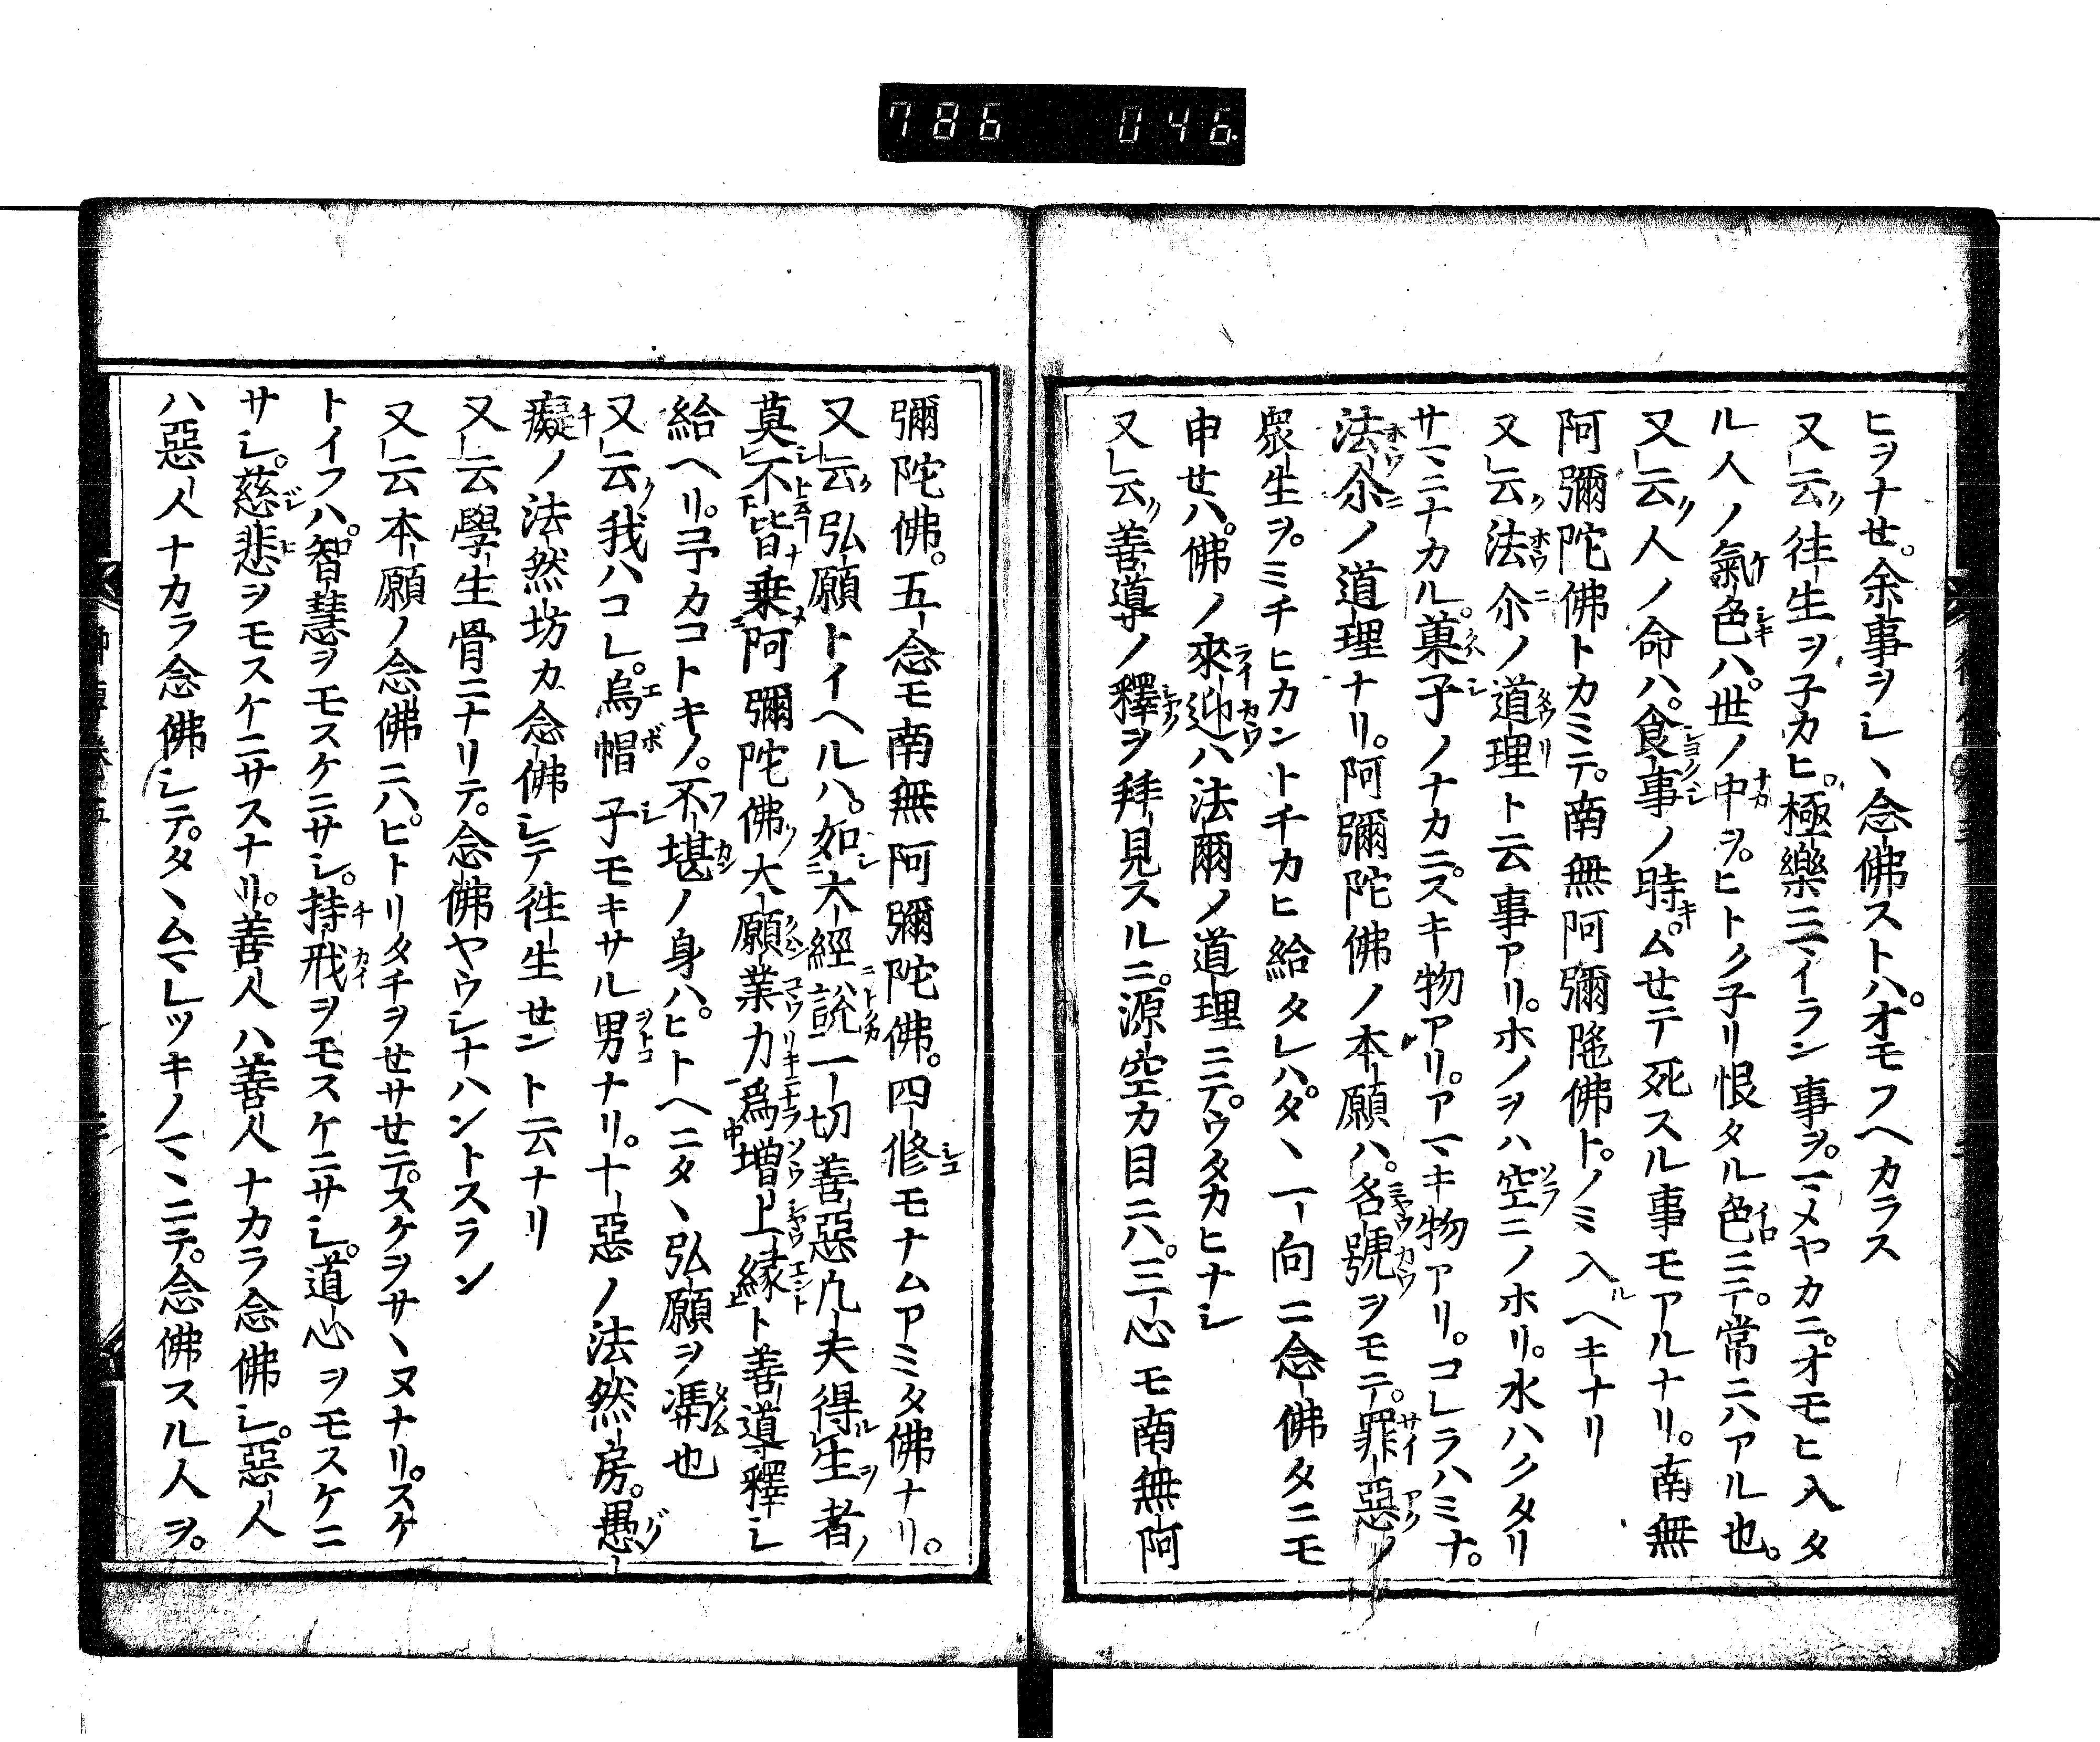 786 046
ヒヲナセ。余事ヲシヽ念佛ストハ。オモフヘカラス
又云往生ヲ子カヒ。極樂ニマイラン事ヲ。マメヤカニ。オモヒ入タ
ル人ノ氣色ハ。世ノ中ヲ。ヒトクヽ子リ恨タル色ニテ。常ニハアル也。
又云人ノ命ハ。食事ノ時。ムセテ死スル事モアルナリ。南無
阿彌陀佛トカミテ。南無阿彌陀佛ト。ノミ入ヘキナリ
又云法尒ノ道理ト云事アリ。ホノヲハ空ニノホリ。水ハクタリ
サマニナカル。菓子ノナカニ。スキ物アリ。アマキ物アリ。コレラハミナ。
法尒ノ道理ナリ。阿彌陀佛ノ本願ハ。名號ヲモテ。罪惡ノ
衆生ヲ。ミチヒカントチカヒ給タレハ。タヽ一向ニ念佛タニモ
申セハ。佛ノ來迎ハ法爾ノ道理ニテ。ウタカヒナシ
又云善導ノ釋ヲ拜見スルニ。源空カ目ニハ。三心モ南無阿
彌陀佛。五念モ南無阿彌陀佛。四修モナムアミタ佛ナリ。
又云弘願トイヘルハ。如大經說一切善惡凡夫得生者
莫不皆乗阿彌陀佛大願業力爲增上緣ト善導釋シ
給ヘリ。予カコトキノ。不堪ノ身ハ。ヒトヘニタヽ弘願ヲ馮也
又云我ハコレ。烏帽子モキサル男ナリ。十惡ノ法然房。愚
癡ノ法然坊カ念佛シテ往生セント云ナリ
又云學生骨ニナリテ。念佛ヤウシナハントスラン
又云本願ノ念佛ニハ。ヒトリタチヲセサセテ。スケヲサヽヌナリ。スケ
トイフハ。智慧ヲモスケニサシ。持戒ヲモスケニサシ。道心ヲモスケニ
サシ。慈悲ヲモスケニサスナリ。善人ハ善人ナカラ念佛シ。惡人
ハ惡人ナカラ念佛シテ。タヽムマレツキノマヽニテ。念佛スル人ヲ。